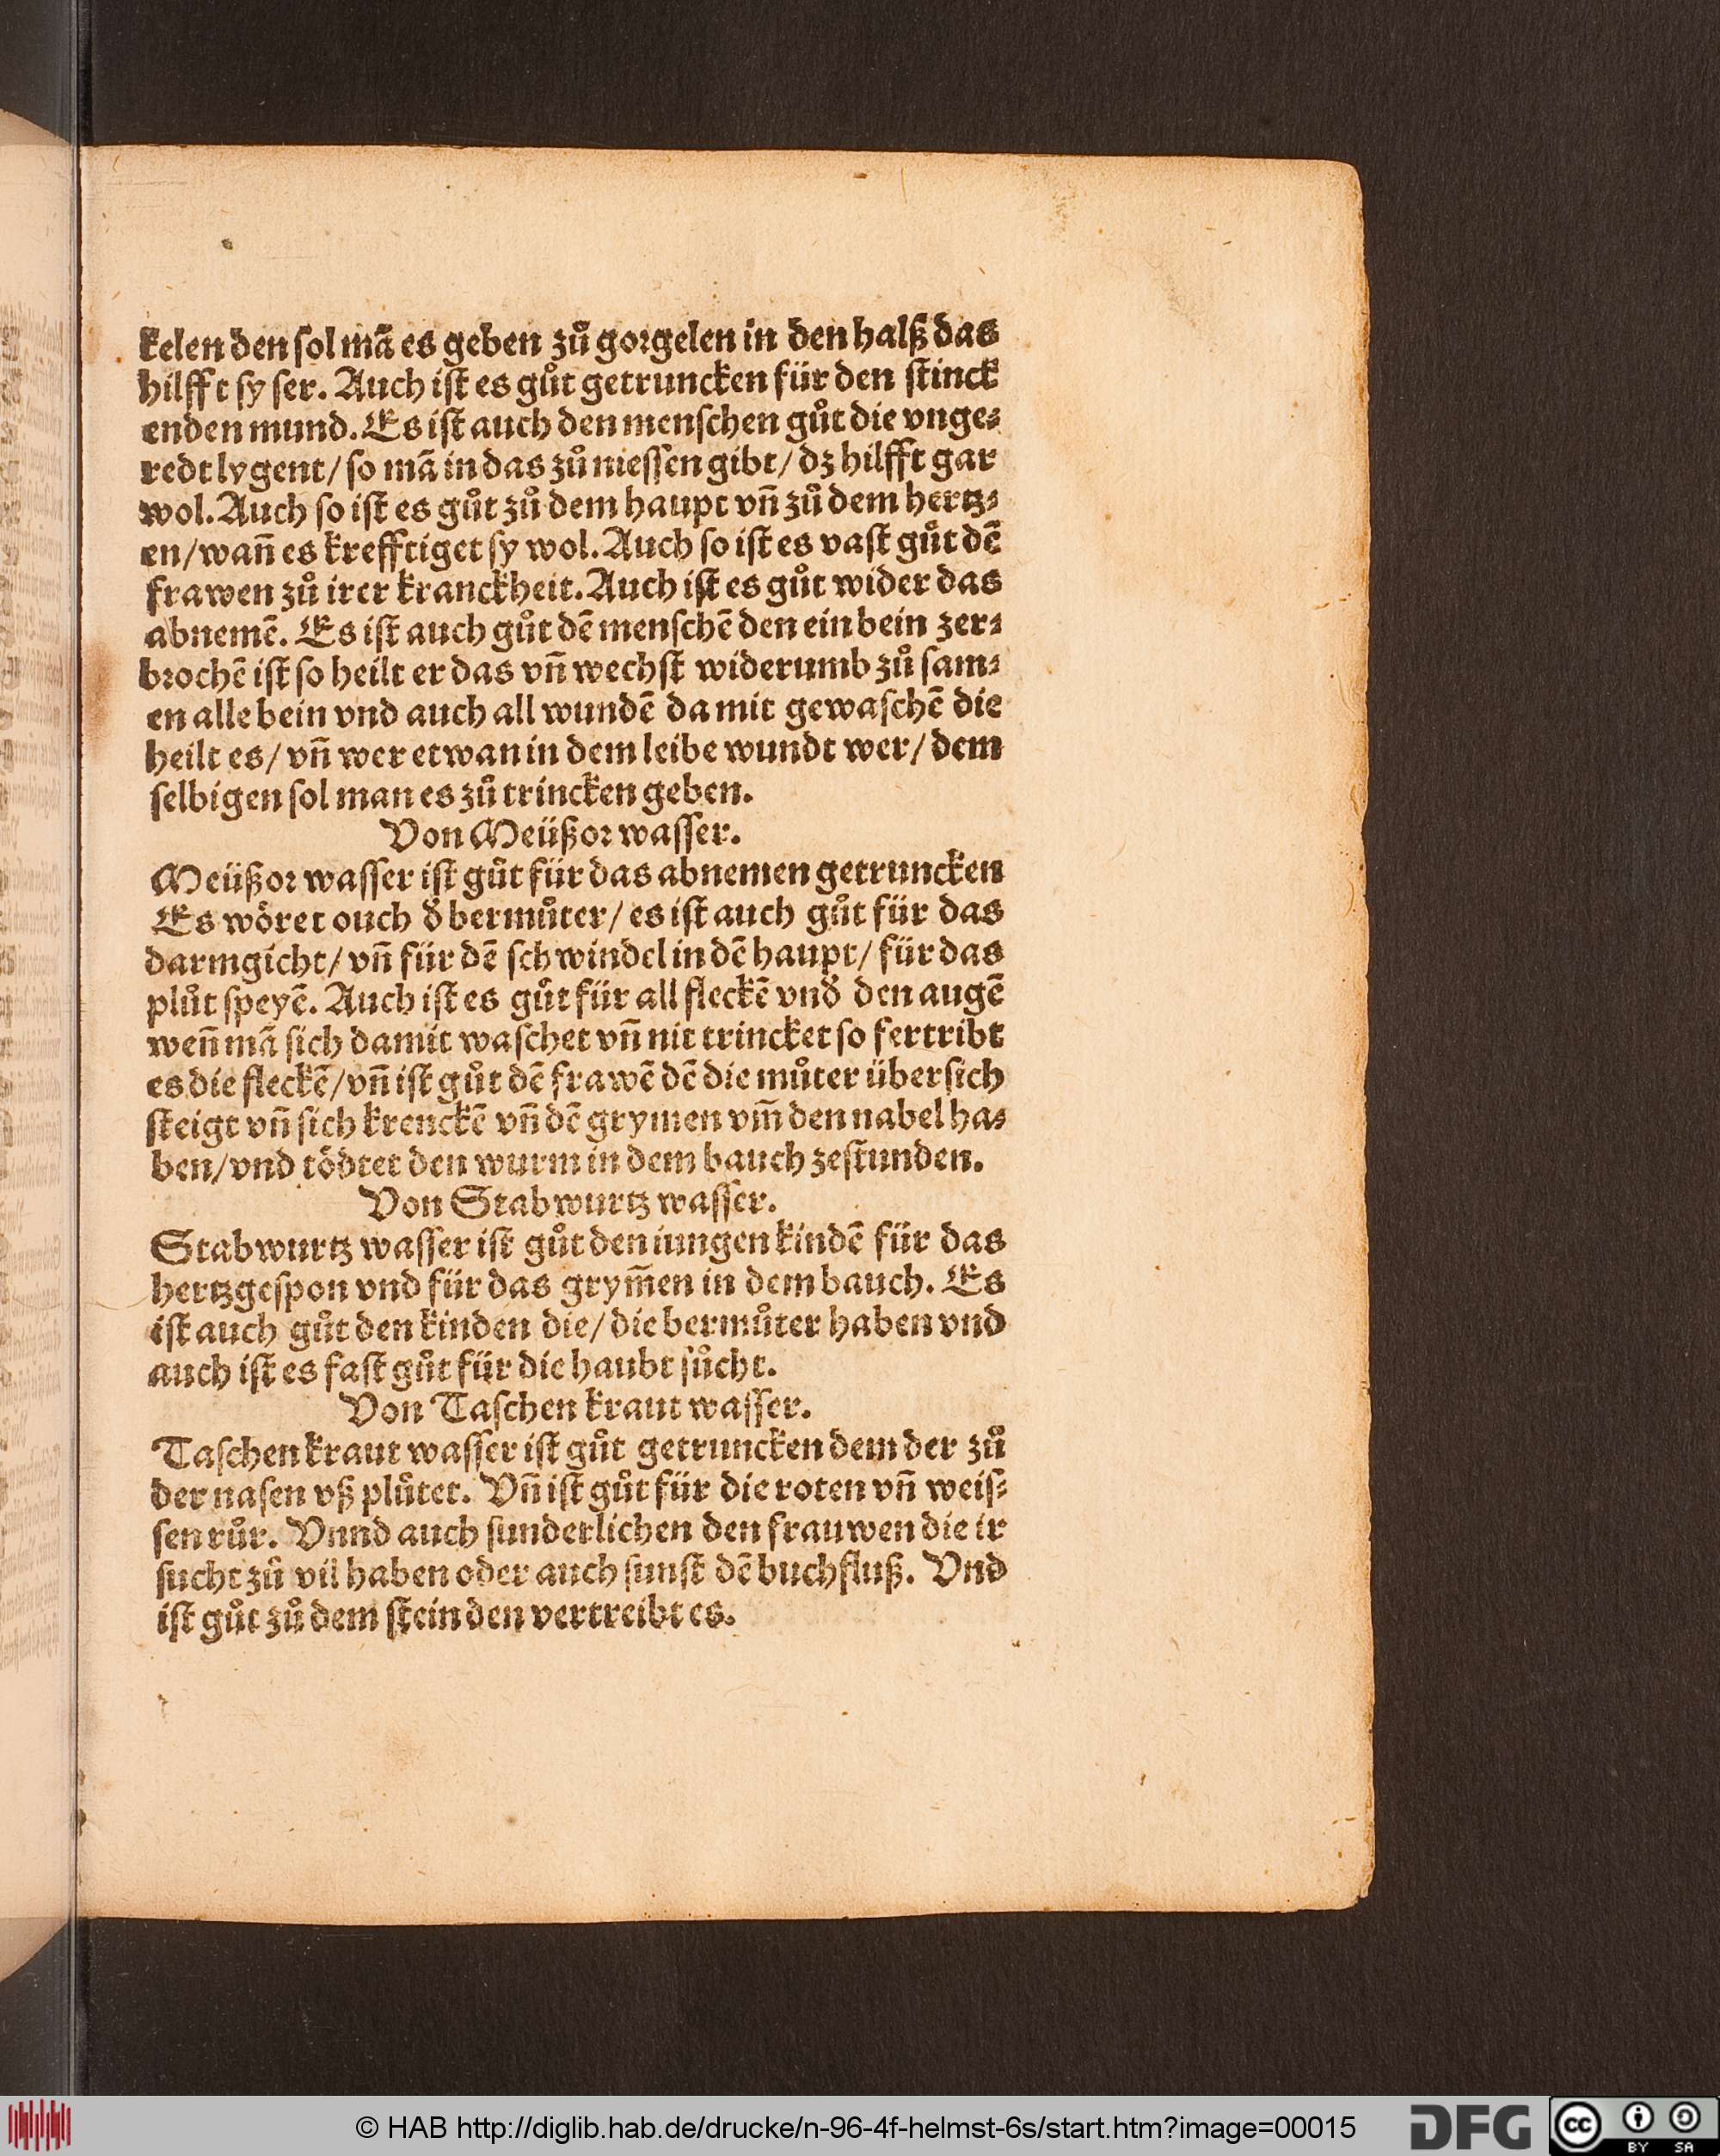 kelen den ſol mã es geben zů gorgelen in den halß das
hilfft ſy ſer. Auch iſt es gůt getruncken für den ſtinck
enden mund. Es iſt auch den menſchen gůt die vnge⸗
redt lygent/ ſo mã in das zů nieſſen gibt/ dz hilfft gar
wol. Auch ſo iſt es gůt zů dem haupt vñ zů dem hertz⸗
en/ wañ es krefftiget ſy wol. Auch ſo iſt es vaſt gůt dẽ
frawen zů irer kranckheit. Auch iſt es gůt wider das
abnemẽ. Es iſt auch gůt dẽ menſchẽ den ein bein zer⸗
brochẽ iſt ſo heilt er das vñ wechſt widerumb zů ſam⸗
en alle bein vnd auch all wundẽ da mit gewaſchẽ die
heilt es/ vñ wer etwan in dem leibe wundt wer/ dem
ſelbigen ſol man es zů trincken geben.
Von Meüßor waſſer.
Meüßor waſſer iſt gůt für das abnemen getruncken
Es wöret ouch d̕ bermůter/ es iſt auch gůt für das
darmgicht/ vñ für dẽ ſchwindel in dẽ haupt/ für das
plůt ſpeyẽ. Auch iſt es gůt für all fleckẽ vnd̕ den augẽ
weñ mã ſich damit waſchet vñ nit trincket ſo fertribt
es die fleckẽ/ vñ iſt gůt dẽ frawẽ dẽ die můter überſich
ſteigt vñ ſich krenckẽ vñ dẽ grymen vm̃ den nabel ha⸗
ben/ vnd tödtet den wurm in dem bauch zeſtunden.
Von Stabwurtz waſſer.
Stabwurtz waſſer iſt gůt den iungen kindẽ für das
hertzgeſpon vnd für das grym̃en in dem bauch. Es
iſt auch gůt den kinden die/ die bermůter haben vnd
auch iſt es faſt gůt für die haubt ſůcht.
Von Taſchen kraut waſſer.
Taſchen kraut waſſer iſt gůt getruncken dem der zů
der naſen vß plůtet. Vñ iſt gůt für die roten vñ weiſ⸗
ſen růr. Vnnd auch ſunderlichen den frauwen die ir
ſucht zů vil haben oder auch ſunſt dẽ buchfluß. Vnd
iſt gůt zů dem ſtein den vertreibt es.
© HAB http://diglib.hab.de/drucke/n-96-4f-helmst-6s/start.htm?image=00015
DFG
cc BY SA